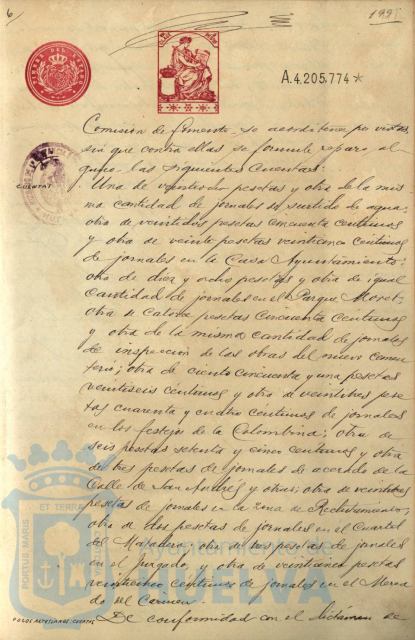 6
199
A.4.205.774*
Comisión de Fomento, se acordó tener por vistas
sin que contra ellas se formule reparo al-
guno, las siguientes Cuentas:
CUENTAS
Una de veintidos pesetas y otra de la mis-
ma cantidad de jornales de surtido de agua;
otra de veintidos pesetas cincuenta centimos
y otra de veinte pesetas veinticinco centimos
de jornales en la Casa Ayuntamiento;
otra de diez y ocho pesetas y otra de igual
cantidad de jornales en el Parque Moret;
otra de catorce pesetas cincuenta centimos
y otra de la misma cantidad de jornales
de inspección de las obras del nuevo cemen-
terio; otra de ciento cincuenta y una pesetas
veintiseis centimos y otra de veintitres pese-
tas cuarenta y cuatro centimos de jornales
en los festejos de la Colombina; otra de
seis pesetas setenta y cinco centimos y otra
de tres pesetas de jornales de acerado de la
Calle de San Andrés y otras; otra de veintitres
pesetas de jornales en la zona de Reclutamiento;
otra de dos pesetas de jornales en el Cuartel
del Matadero; otra de tres pesetas de jornales
en el juzgado, y otra de veinticinco pesetas
veinticinco centimos de jornales en el Merca-
do del Carmen.
De conformidad con el dictamen de
PORTUS MARIS ET TERRAE
Ayuntamiento de
HUELVA